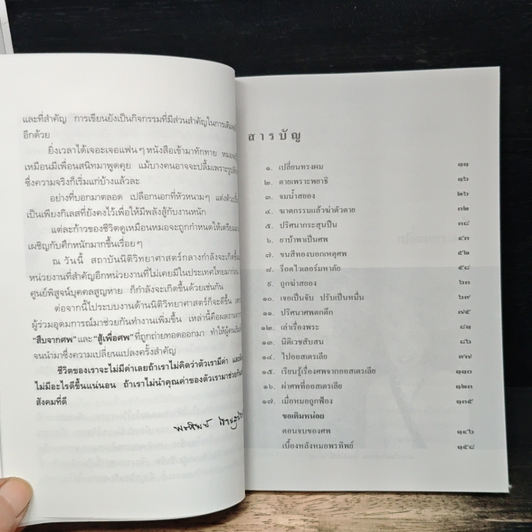 และที่สำคัญ การเขียนยังเป็นกิจกรรมที่มีส่วนสำคัญในการเติม
อีกด้วย
ยิ่งเวลาได้เจอะเจอแฟนๆ หนังสือเข้ามาทักทาย
เหมือนมีเพื่อนสนิทมาพูดคุย แม้บางคนอาจจะปลื้มเพราะ
ซึ่งความจริงก็เริ่มแก่บ้างแล้วละ
อย่างที่บอกมาตลอด เปลือกนอกที่หัวหนามๆ แต่งตัว
เป็นเพียงกิเลสที่ยังคงไว้เพื่อให้มีพลังสู้กับงานหนัก
และก้าวของชีวิตดูเหมือนหมอจะถูกกำหนดให้เตรียม
เผชิญกับศึกหนักมากขึ้นเรื่อยๆ
ณ วันนี้ สถาบันนิติวิทยาศาสตร์กลางกำลังจะเกิดขึ้น
หน่วยงานที่สำคัญอีกหน่วยงานที่ไม่เคยมีในประเทศไทยมาก่อน
ศูนย์พิสูจน์บุคคลสูญหาย ก็กำลังจะเกิดขึ้นด้วยเช่นกัน
ต่อจากนี้ไประบบงานด้านนิติวิทยาศาสตร์ก็จะดีขึ้น
ผู้ร่วมอุดมการณ์มาช่วยกันทำงานเพิ่มขึ้น เหล่านี้คือผลงาน
"สืบจากศพ" และ "สู้เพื่อศพ" ที่ถูกถ่ายทอดออกมา ทำให้ผู้คน
จนนำมาซึ่งความเปลี่ยนแปลงครั้งสำคัญ
ชีวิตของเราจะไม่มีค่าเลยถ้าเราไม่คิดว่าตัวเรามีค่า และ
ไม่มีอะไรดีขึ้นแน่นอน ถ้าเราไม่นำคุณค่าของตัวเรามาช่วยกัน
สังคมที่ดี
สารบัญ
๑. เปลี่ยนทรงผม ๑๑
๒. ตายเพราะพยาธิ ๑๖
๓. จมน้ำสยอง ๒๖
๔. ฆาตกรรมแล้วฆ่าตัวตาย ๒๖
๕. ปริศนากระสุนปืน ๓๘
๖. ยาบ้าพาเป็นศพ ๔๓
๗. จบสีทองบอกเหตุศพ ๕๒
๘. ร็อตไวเลอร์มหาภัย ๕๘
๙. ถูกฆ่าสยอง ๖๓
๑๐. เจอเป็นจับ ปรับเป็นหมื่น ๖๙
๑๑. ปริศนาศพตกตึก ๗๕
๑๒. เล่าเรื่องพระ ๘๑
๑๓. นิติเวชสับสน
๑๔. ไปออสเตรเลีย ๗๗
๑๕. เรียนรู้เรื่องศพจากออสเตรเลีย
๑๖. ผ่าศพที่ออสเตรเลีย ๑๒๓
๑๗. เมื่อหมอถูกฟ้อง ๑๓๕
ขอเติมหน่อย
ตอนจบของศพ ๑๔๖
เบื้องหลังหมอพรทิพย์ ๑๕๘